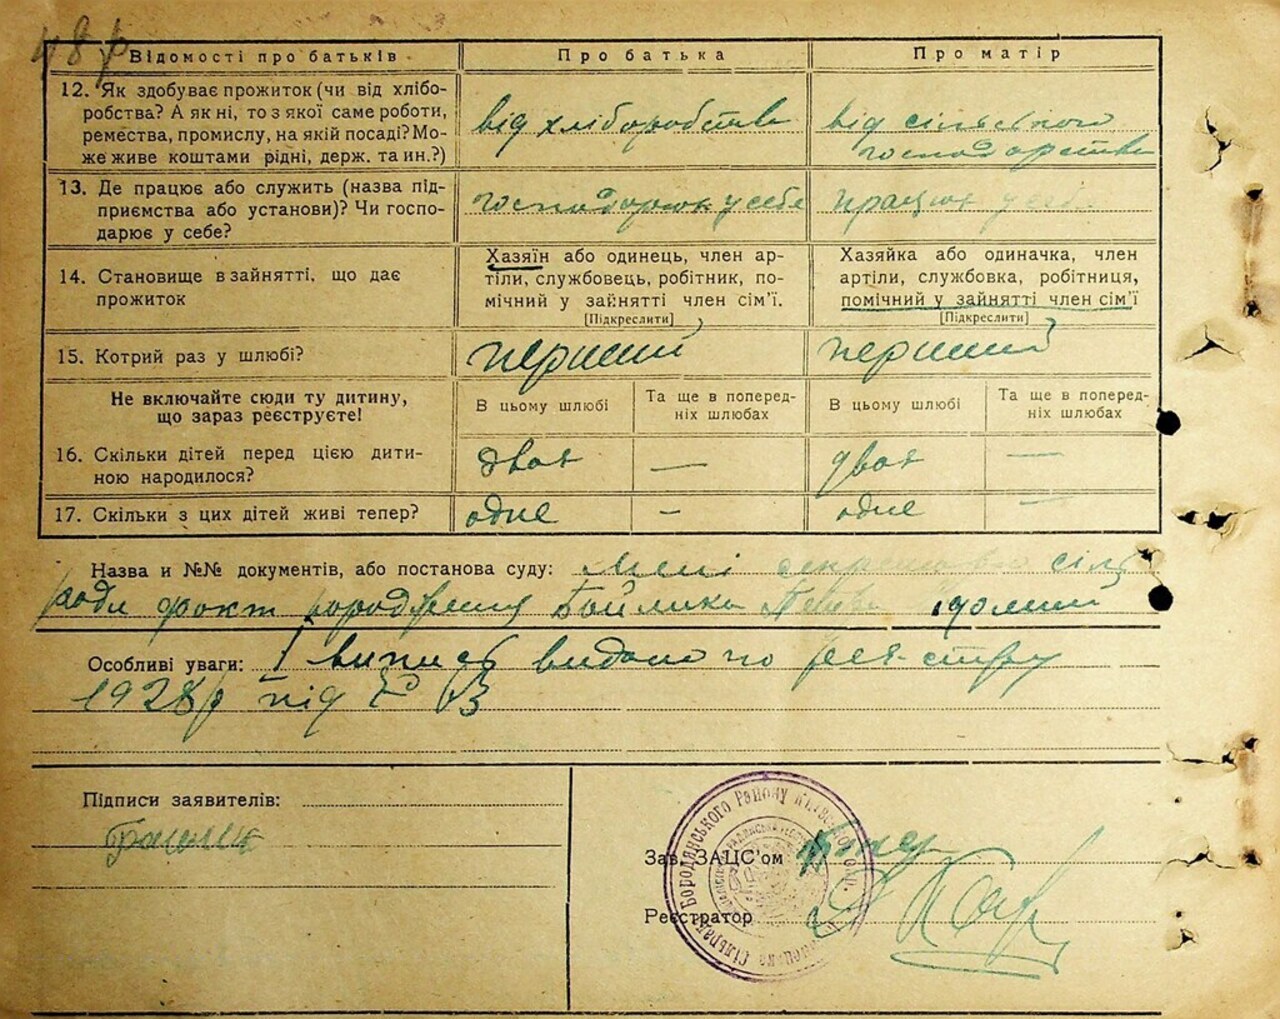 48 р
Відомості про батьків
Про батька
Про матір
12. Як здобуває прожиток (чи від хлібо-
робства? А як ні, то з якої саме роботи,
ремества, промислу, на якій посаді? Мо-
же живе коштами рідні, держ. та ин.?)
від хліборобства
від сільського
господарства
13. Де працює або служить (назва під-
приємства або установи)? Чи госпо-
дарює у себе?
господарюю у себе
працюю у себе
14. Становище в зайнятті, що дає
прожиток
Хазяїн або одинець, член ар-
тіли, службовець, робітник, по-
мічний у зайнятті член сім'ї.
[Підкреслити]
Хазяйка або одиначка, член
артіли, службовка, робітниця,
помічний у зайнятті член сім'ї
[Підкреслити]
15. Котрий раз у шлюбі?
перший
перший
Не включайте сюди ту дитину,
що зараз реєструєте!
В цьому шлюбі
Та ще в поперед-
ніх шлюбах
В цьому шлюбі
Та ще в поперед-
ніх шлюбах
16. Скільки дітей перед цією дити-
ною народилося?
двоє
—
двоє
—
17. Скільки з цих дітей живі тепер?
одне
—
одне
—
Назва и №№ документів, або постанова суду: Мені секретові сіль
ради факт народження
Особливі уваги: 1 випись видано по реєстру
1928 р під № 13
Підписи заявителів:
Зав. ЗАЦС'ом
Реєстратор
Сільрада Бородянського Району Київської окр.